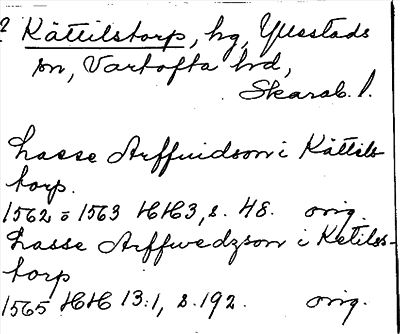 2 Kättilstorp, hg, Yllestads
sn, Vartofta hd,
Skarab. l.
Lasse Arffuidson i Kättils
torp.
1562 o 1563 HH3, s. 48. orig.
Lasse Arffwedzson i Ketilss-
torp
1565 HH 13:1, s. 192. orig.